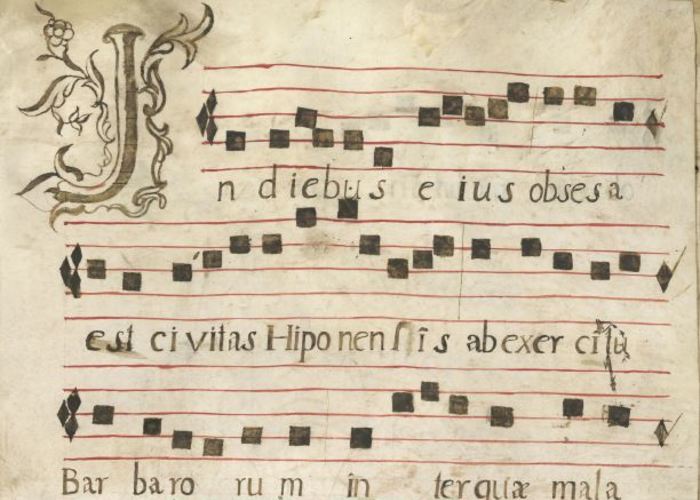 In diebus eius obsesa
est civitas Hiponensis ab exercitû
Barbarorum in ter quæ mala